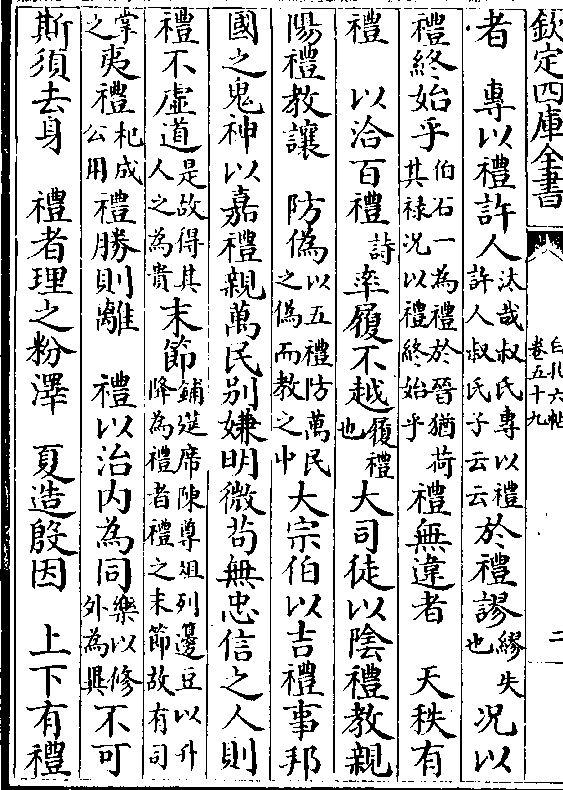 欽定四庫全書
白孔六帖
卷五十九
二
者　專以禮許人汰哉叔氏專以禮許人叔氏子云云於禮謬繆失也況以
禮終始乎伯石一為禮於晉猶荷其祿況以禮終始乎禮無違者　天秩有
禮　以洽百禮詩率履不越履禮也大司徒以陰禮教親
陽禮教讓　防偽以五禮防萬民之偽而教之中大宗伯以吉禮事邦
國之鬼神以嘉禮親萬民別嫌明微苟無忠信之人則
禮不虛道是故得其人之為貴末節鋪筵席陳尊俎列籩豆以升降為禮者禮之末節故有司
掌之夷禮杞成公用禮勝則離　禮以治內為同樂以修外為異不可
斯須去身　禮者理之粉澤　夏造殷因　上下有禮